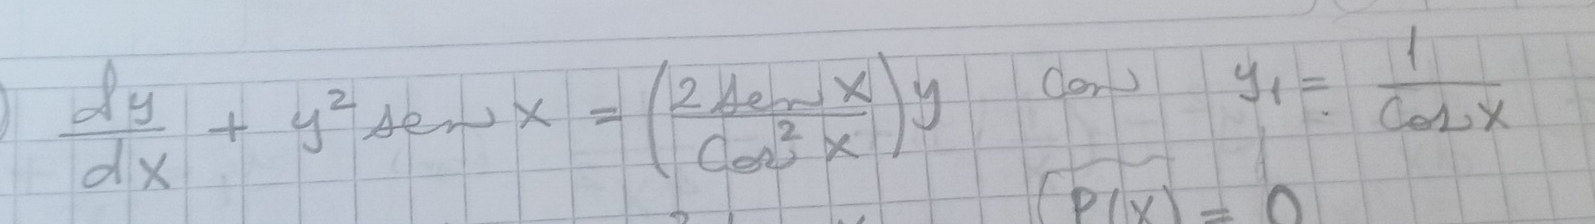 dy/dx + y² sen x = (2 sen x / cos² x) y con y₁ = 1 / cos x
(P(x) = 0